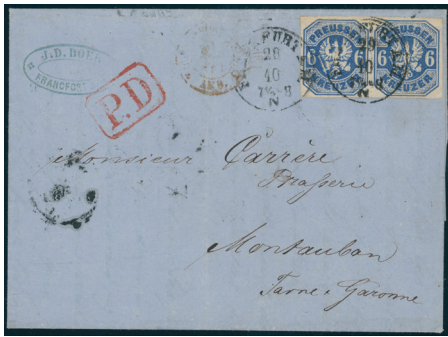 J.D. BOER
FRANCFORT
P.D
FURT
29
10
7½-8
N
PREUSSEN
6 6
KREUZER
PREUSSEN
6 6
KREUZER
Monsieur Carrère
Brasserie
Montauban
Tarne & Garonne